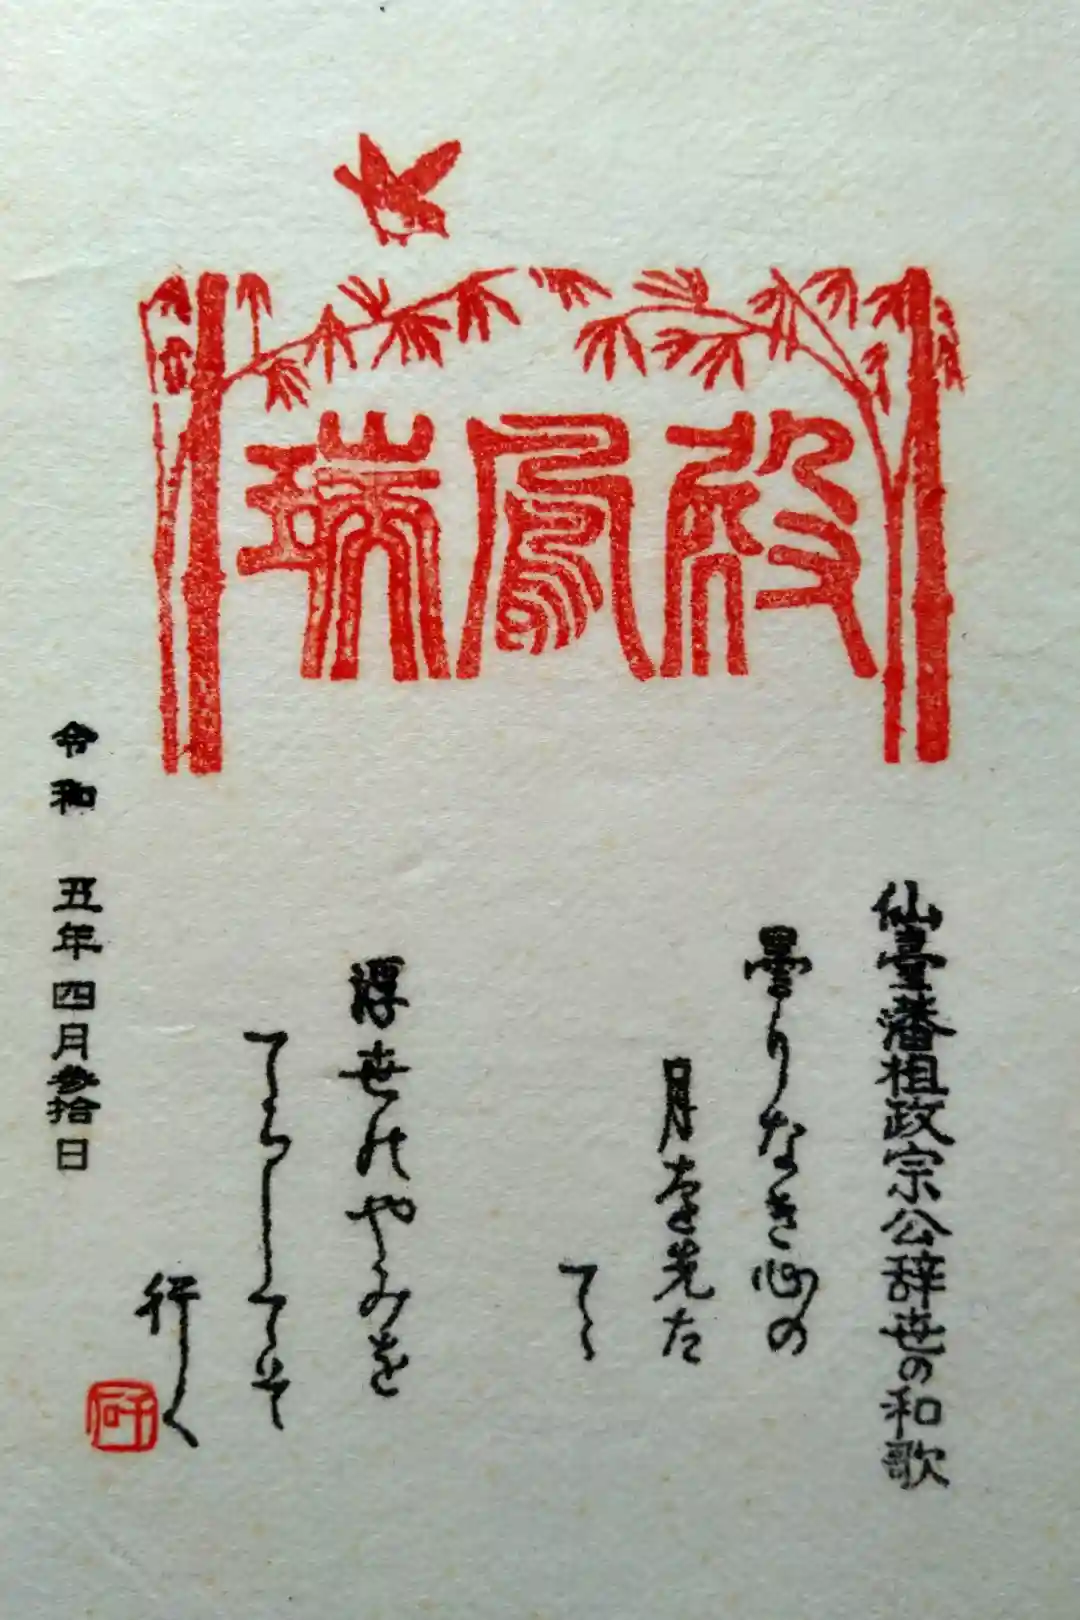 瑞鳳殿
仙臺藩祖政宗公辞世の和歌
曇りなき心の
月を先た
てゝ
浮世のやみを
てらしてそ
行く
令和 五年四月参拾日